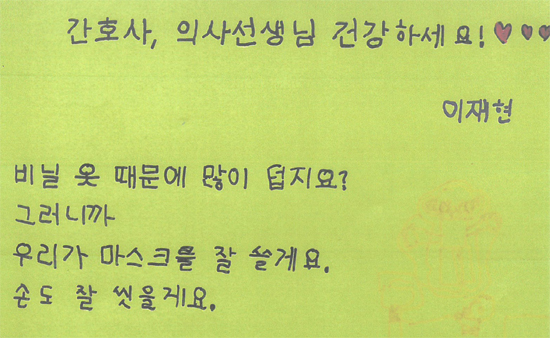 간호사, 의사선생님 건강하세요!♥♥♥
이재현
비닐 옷 때문에 많이 덥지요?
그러니까
우리가 마스크를 잘 쓸게요.
손도 잘 씻을게요.